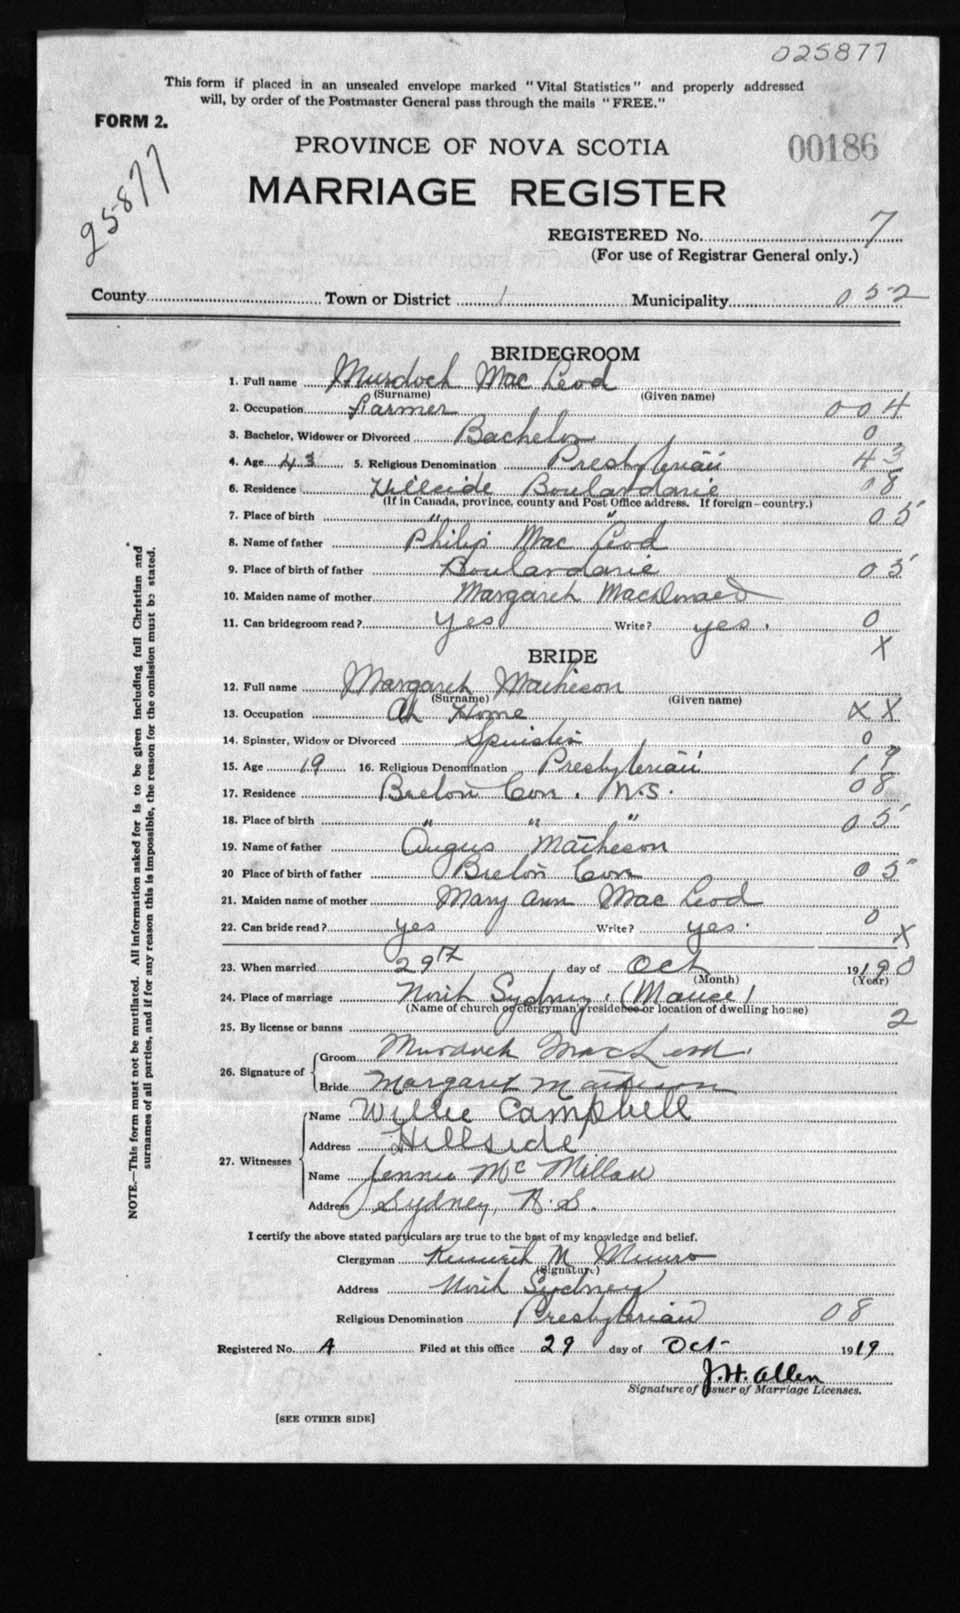 025877
This form if placed in an unsealed envelope marked "Vital Statistics" and properly addressed
will, by order of the Postmaster General pass through the mails "FREE."
FORM 2.
25877
PROVINCE OF NOVA SCOTIA
00186
MARRIAGE REGISTER
REGISTERED No. 7
(For use of Registrar General only.)
County Town or District 1 Municipality 052
BRIDEGROOM
1. Full name Murdoch Mac Leod
(Surname) (Given name)
2. Occupation Farmer 004
3. Bachelor, Widower or Divorced Bachelor 0
4. Age 43 5. Religious Denomination Presbyterian 43
6. Residence Hillside Boulardarie 08
(If in Canada, province, county and Post Office address. If foreign—country.)
7. Place of birth " " 05
8. Name of father Philip Mac Leod
9. Place of birth of father Boulardarie 05
10. Maiden name of mother Margaret MacDonald
11. Can bridegroom read? Yes Write? yes. 0
X
BRIDE
12. Full name Margaret Matheson
(Surname) (Given name)
13. Occupation At Home X X
14. Spinster, Widow or Divorced Spinster 0
15. Age 19 16. Religious Denomination Presbyterian 19
17. Residence Breton Cove. N.S. 08
18. Place of birth " " " 05
19. Name of father Angus Matheson
20 Place of birth of father Breton Cove 05
21. Maiden name of mother Mary Ann Mac Leod
22. Can bride read? yes Write? yes. 0
X
23. When married 29th day of Oct 1919 0
(Month) (Year)
24. Place of marriage North Sydney. (Manse)
(Name of church or clergyman's residence or location of dwelling house)
25. By license or banns 2
26. Signature of Groom Murdoch MacLeod.
Bride Margaret Matheson
27. Witnesses Name Willie Campbell
Address Hillside
Name Jennie McMillan
Address Sydney, N.S.
NOTE.—This form must not be mutilated. All information asked for is to be given including full Christian and
surnames of all parties, and if for any reason this is impossible, the reason for the omission must be stated.
I certify the above stated particulars are true to the best of my knowledge and belief.
Clergyman Kenneth M Munro
(Signature)
Address North Sydney
Religious Denomination Presbyterian 08
Registered No. A Filed at this office 29 day of Oct- 1919
J. H. Allen
Signature of Issuer of Marriage Licenses.
[SEE OTHER SIDE]